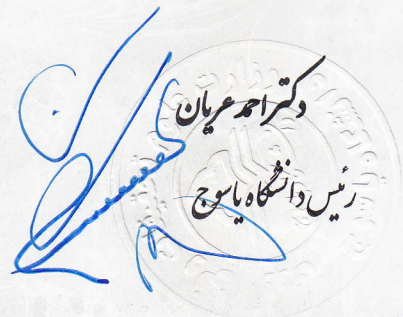 دکتر احمد عریان
رئیس دانشگاه یاسوج